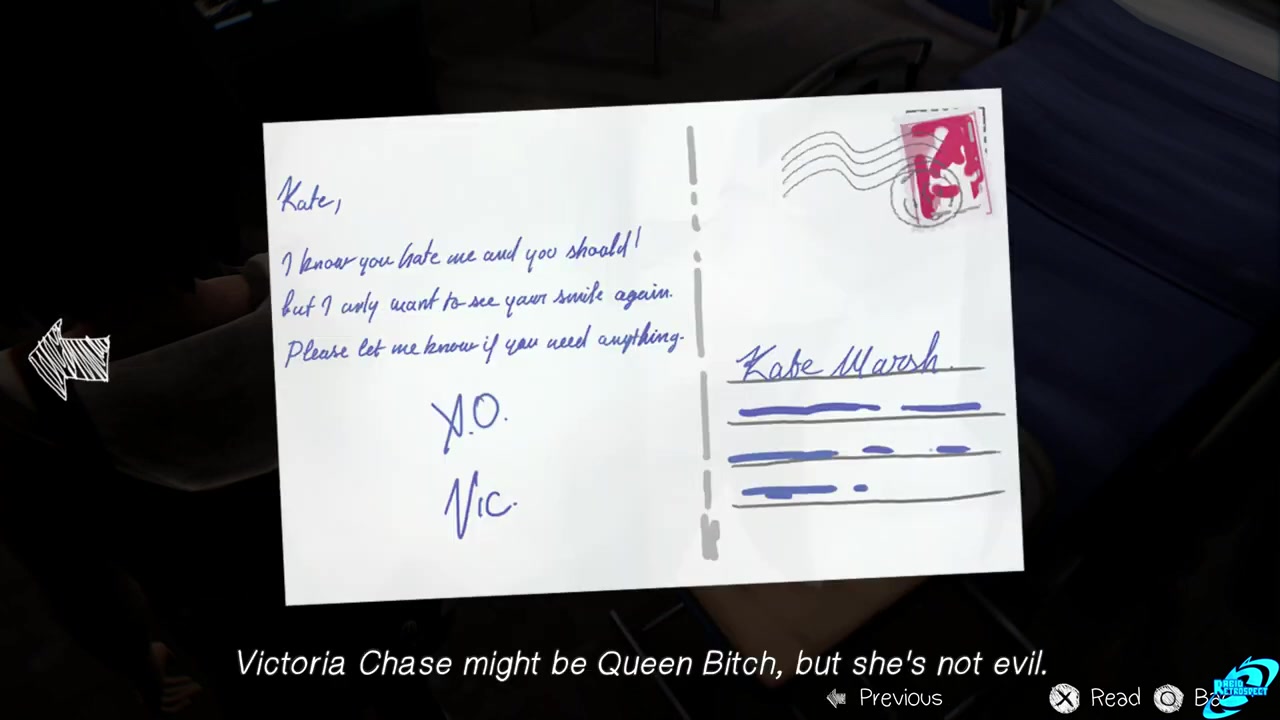 Kate,
I know you hate me and you should!
but I only want to see your smile again.
Please let me know if you need anything.
X.O.
Vic.
Kate Marsh.
Victoria Chase might be Queen Bitch, but she's not evil.
Previous
Read
RAPID
RETROSPECT